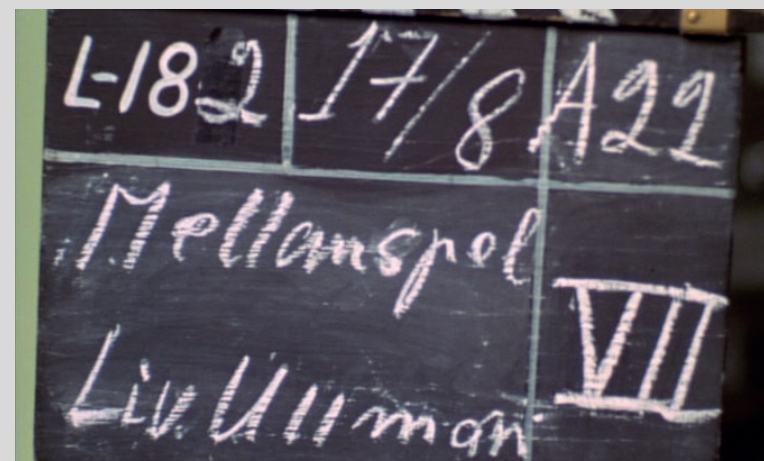 L-182 17/8 A22
Mellanspel
VII
Liv Ullman